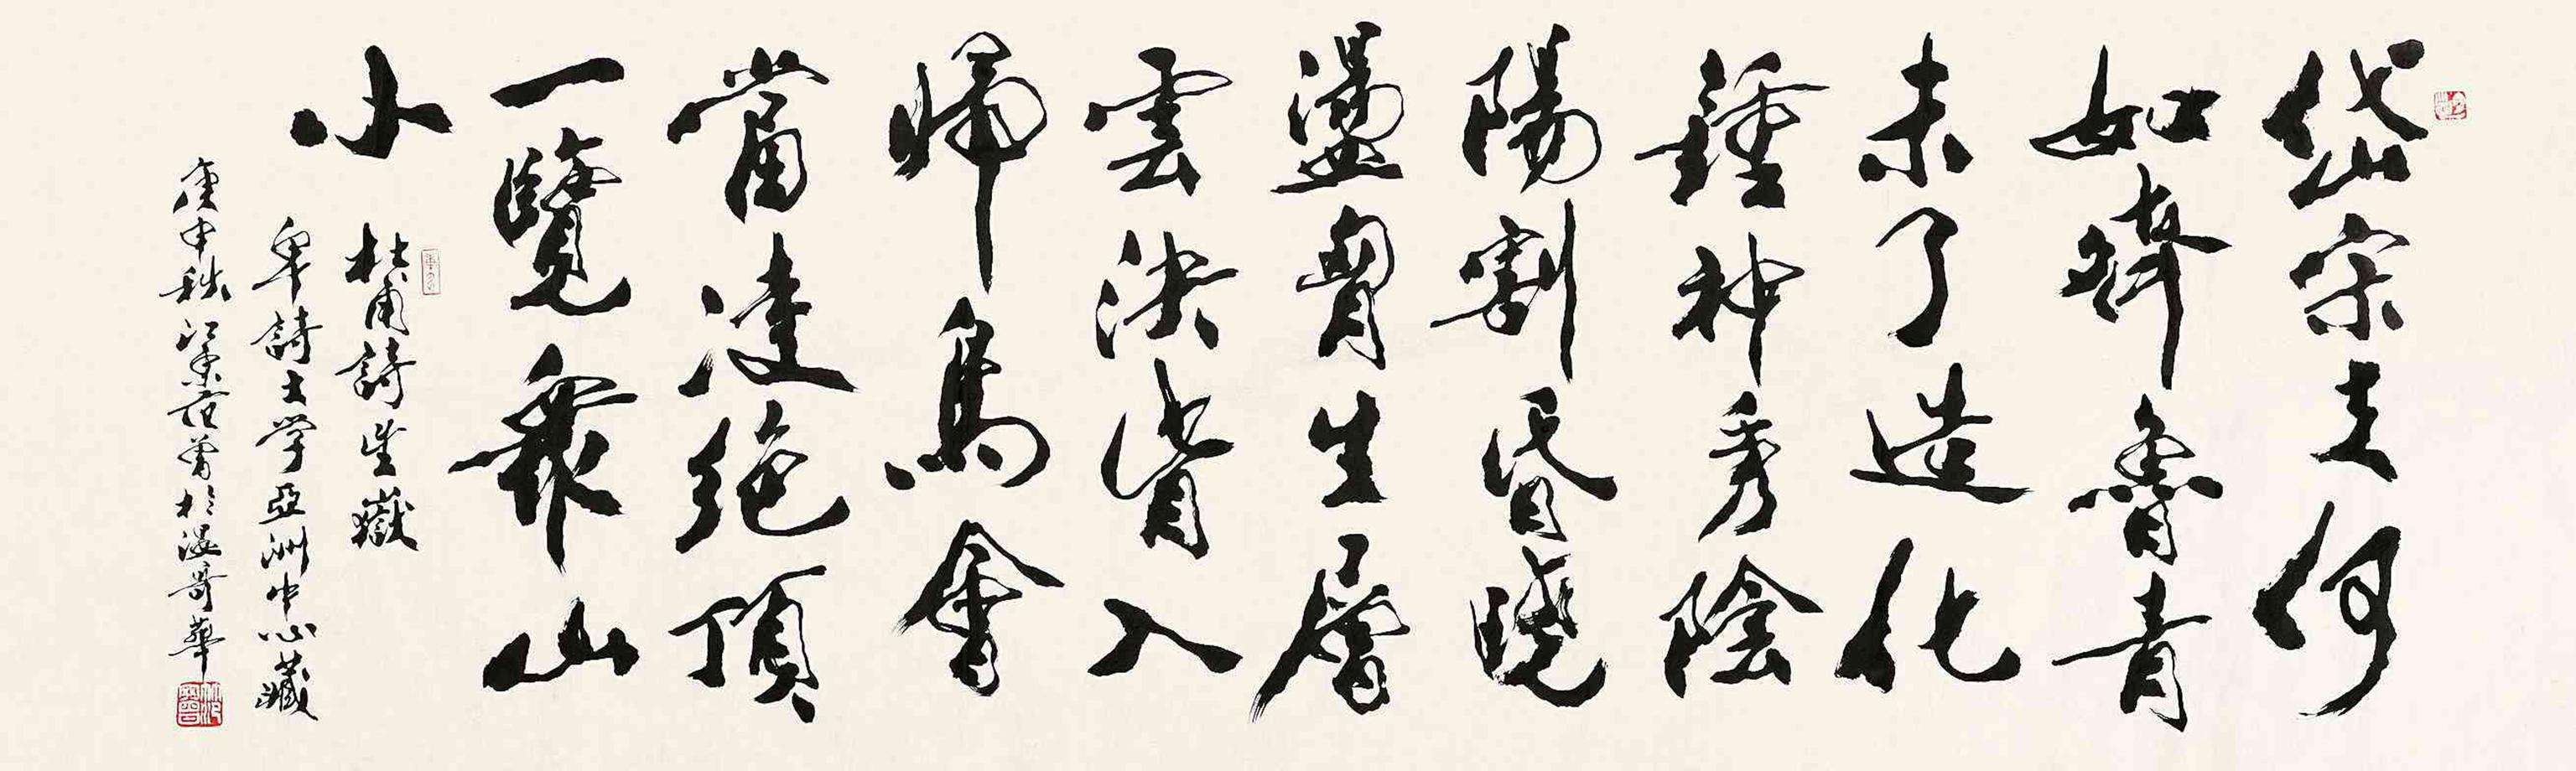 岱宗夫何
如齊魯青
未了造化
鍾神秀陰
陽割昏曉
盪胷生層
雲決眥入
歸鳥會
當凌絕頂
一覽眾山
小
杜甫詩望嶽
卑詩大学亞洲中心藏
庚申秋江東范曾於温哥華
范曾